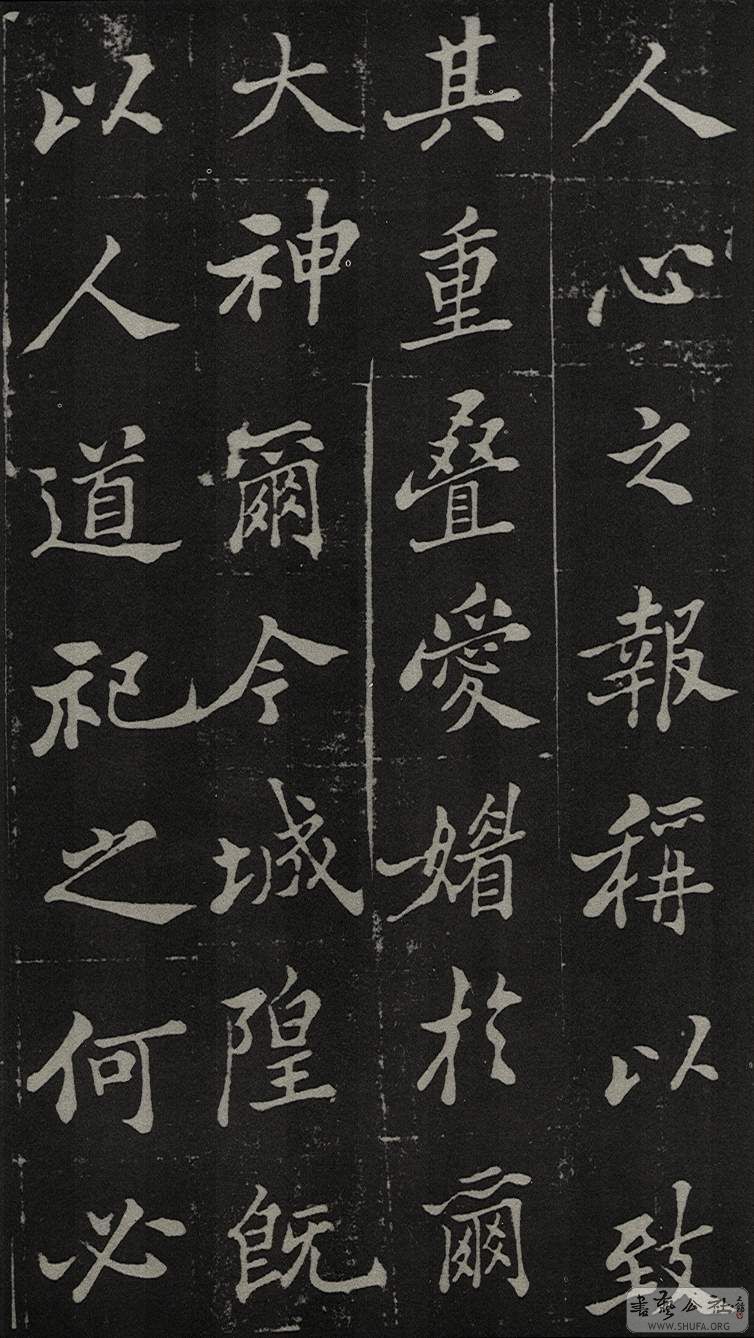 人心之報稱以致
其重疊愛媚於爾
大神爾今城隍既
以人道祀之何必
書藝公社
WWW.SHUFA.ORG